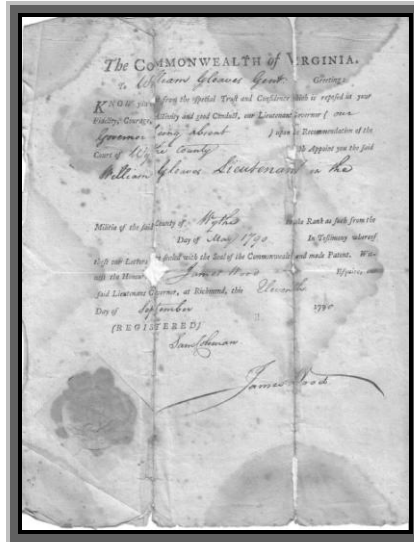 The COMMONWEALTH of VIRGINIA.
To William Gleaves Gent. Greeting:
KNOW you from the special Trust and Confidence which is reposed in your
Fidelity, Courage, Activity and good Conduct, our Lieutenant Governor { our
Governor being absent } upon the Recommendation of the
Court of Wythe County Appoint you the said
William Gleaves Lieutenant in the
Militia of the said County of Wythe to take Rank as such from the
Day of May 1790 In Testimony whereof
these our Letters sealed with the Seal of the Commonwealth and made Patent.
the Honour James Wood Esquire, our
said Lieutenant Governor, at Richmond, this Eleventh
Day of September 1790
(REGISTERED)
Sam Coleman
James Wood